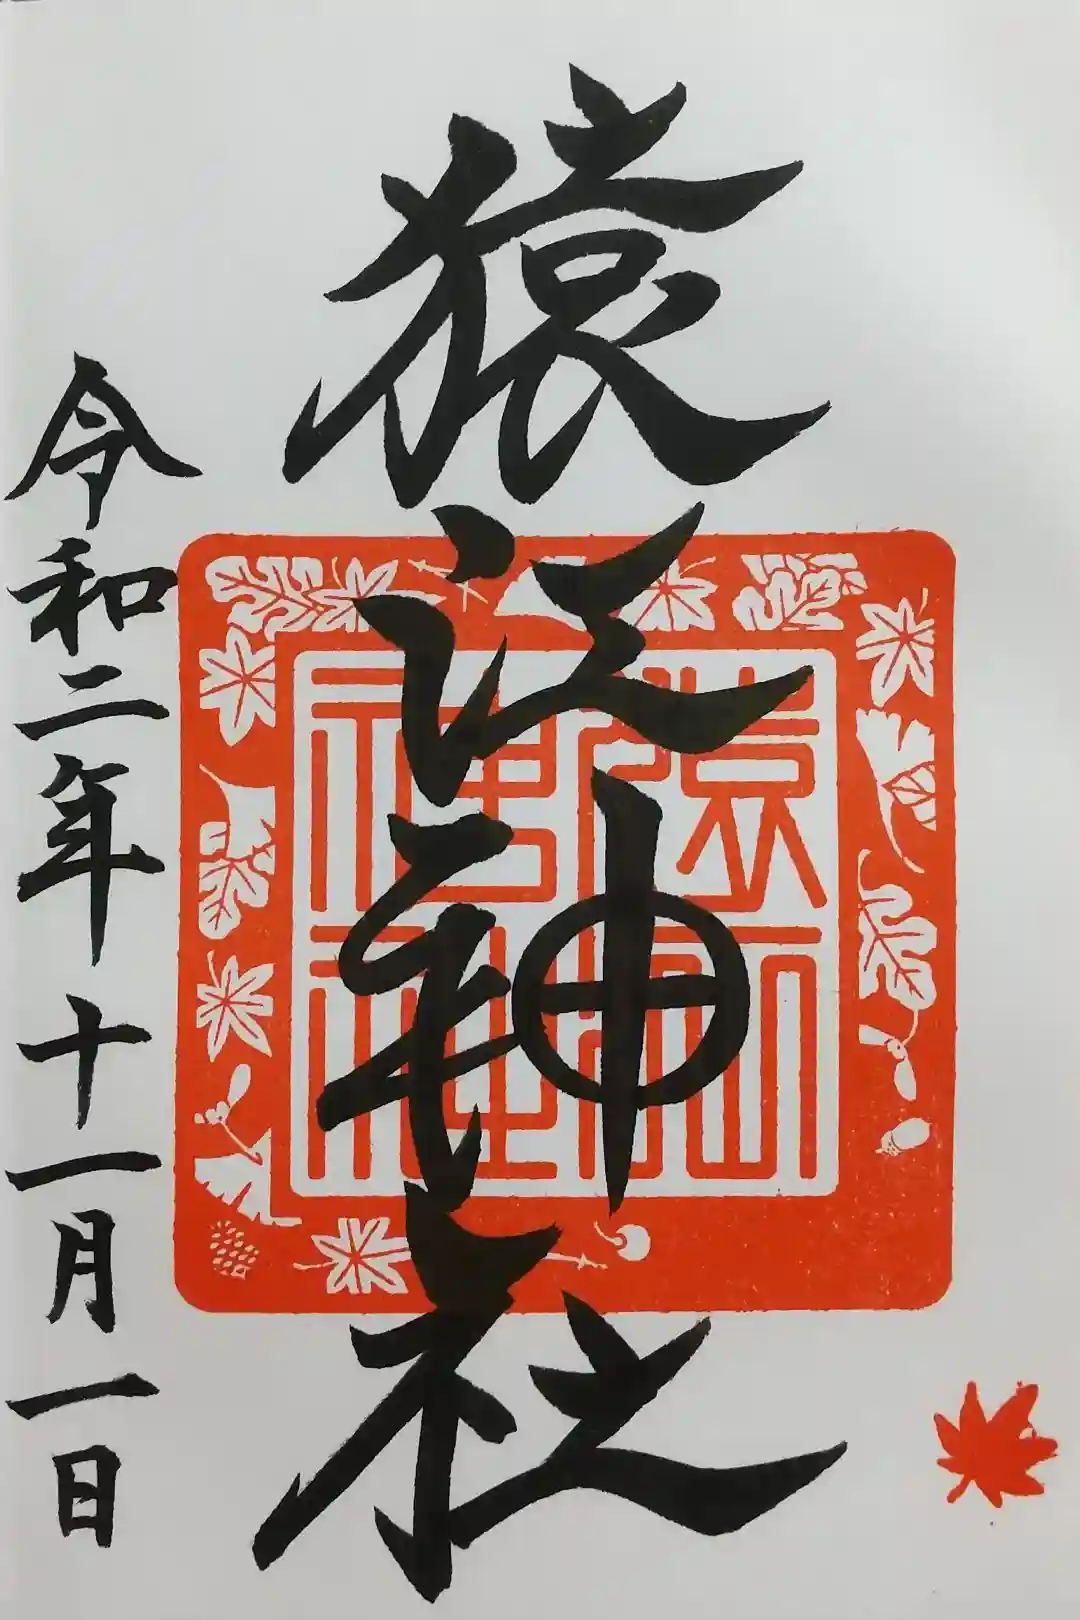 猿江神社
猿江
神社
令和二年十一月一日